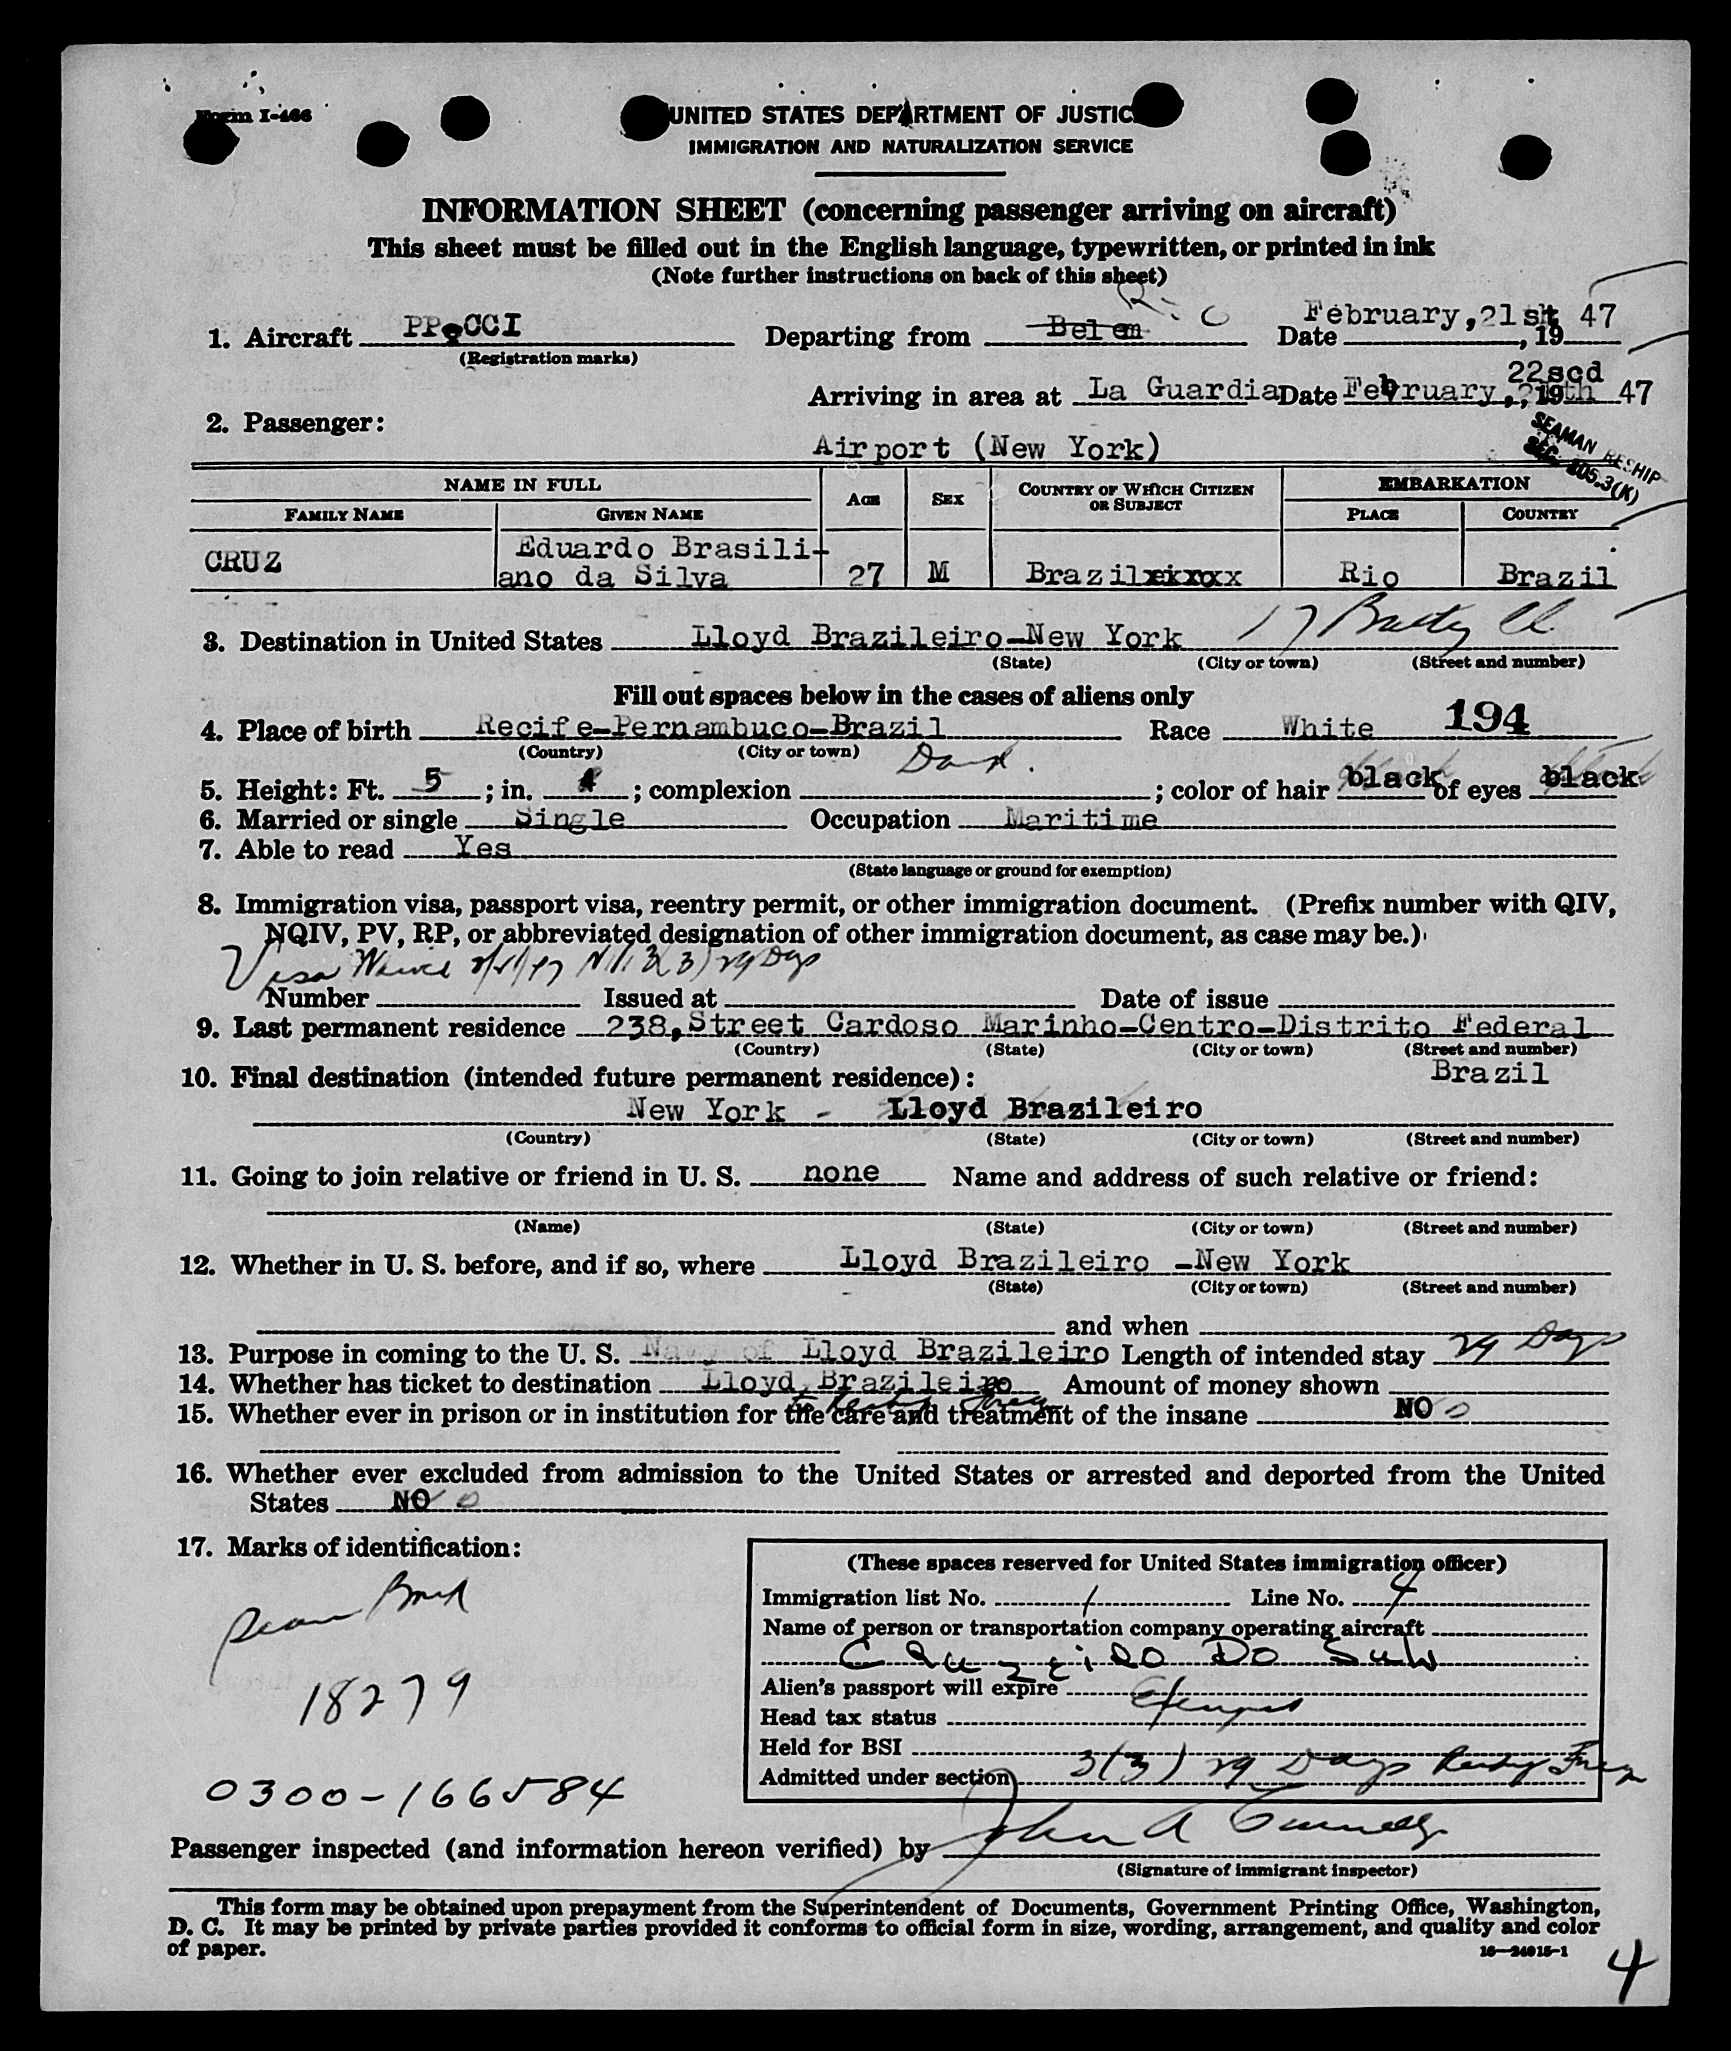 Form I-466
UNITED STATES DEPARTMENT OF JUSTIC
IMMIGRATION AND NATURALIZATION SERVICE
INFORMATION SHEET (concerning passenger arriving on aircraft)
This sheet must be filled out in the English language, typewritten, or printed in ink
(Note further instructions on back of this sheet)
1. Aircraft PP-CCI Departing from Belem Rio Date February, 21st, 19 47
(Registration marks)
22scd
Arriving in area at La Guardia Date February, 19 47
2. Passenger:
Airport (New York)
SEAMAN RESHIP
SEC. 105.3(K)
NAME IN FULL AGE SEX COUNTRY OF WHICH CITIZEN OR SUBJECT EMBARKATION
FAMILY NAME GIVEN NAME PLACE COUNTRY
CRUZ Eduardo Brasili-
ano da Silva 27 M Brazil Rio Brazil
3. Destination in United States Lloyd Brazileiro-New York 17 Battery Pl.
(State) (City or town) (Street and number)
Fill out spaces below in the cases of aliens only
4. Place of birth Recife-Pernambuco-Brazil Race White 194
(Country) (City or town)
5. Height: Ft. 5; in. 4; complexion Dark.; color of hair black of eyes black
6. Married or single Single Occupation Maritime
7. Able to read Yes
(State language or ground for exemption)
8. Immigration visa, passport visa, reentry permit, or other immigration document. (Prefix number with QIV,
NQIV, PV, RP, or abbreviated designation of other immigration document, as case may be.)
Visa Waived 3(3) 29 Days
Number Issued at Date of issue
9. Last permanent residence 238, Street Cardoso Marinho-Centro-Distrito Federal
(Country) (State) (City or town) (Street and number)
10. Final destination (intended future permanent residence): Brazil
New York - Lloyd Brazileiro
(Country) (State) (City or town) (Street and number)
11. Going to join relative or friend in U. S. none Name and address of such relative or friend:
(Name) (State) (City or town) (Street and number)
12. Whether in U. S. before, and if so, where Lloyd Brazileiro -New York
(State) (City or town) (Street and number)
and when
13. Purpose in coming to the U. S. Navy of Lloyd Brazileiro Length of intended stay 29 Days
14. Whether has ticket to destination Lloyd Brazileiro Amount of money shown
15. Whether ever in prison or in institution for the care and treatment of the insane NO
16. Whether ever excluded from admission to the United States or arrested and deported from the United
States NO
17. Marks of identification:
18279
0300-166584
(These spaces reserved for United States immigration officer)
Immigration list No. 1 Line No. 4
Name of person or transportation company operating aircraft
Cruzeiro Do Sul
Alien's passport will expire
Head tax status Exempt
Held for BSI
Admitted under section 3(3) 29 Days
Passenger inspected (and information hereon verified) by John A
(Signature of immigrant inspector)
This form may be obtained upon prepayment from the Superintendent of Documents, Government Printing Office, Washington,
D. C. It may be printed by private parties provided it conforms to official form in size, wording, arrangement, and quality and color
of paper.
16—24015-1
4